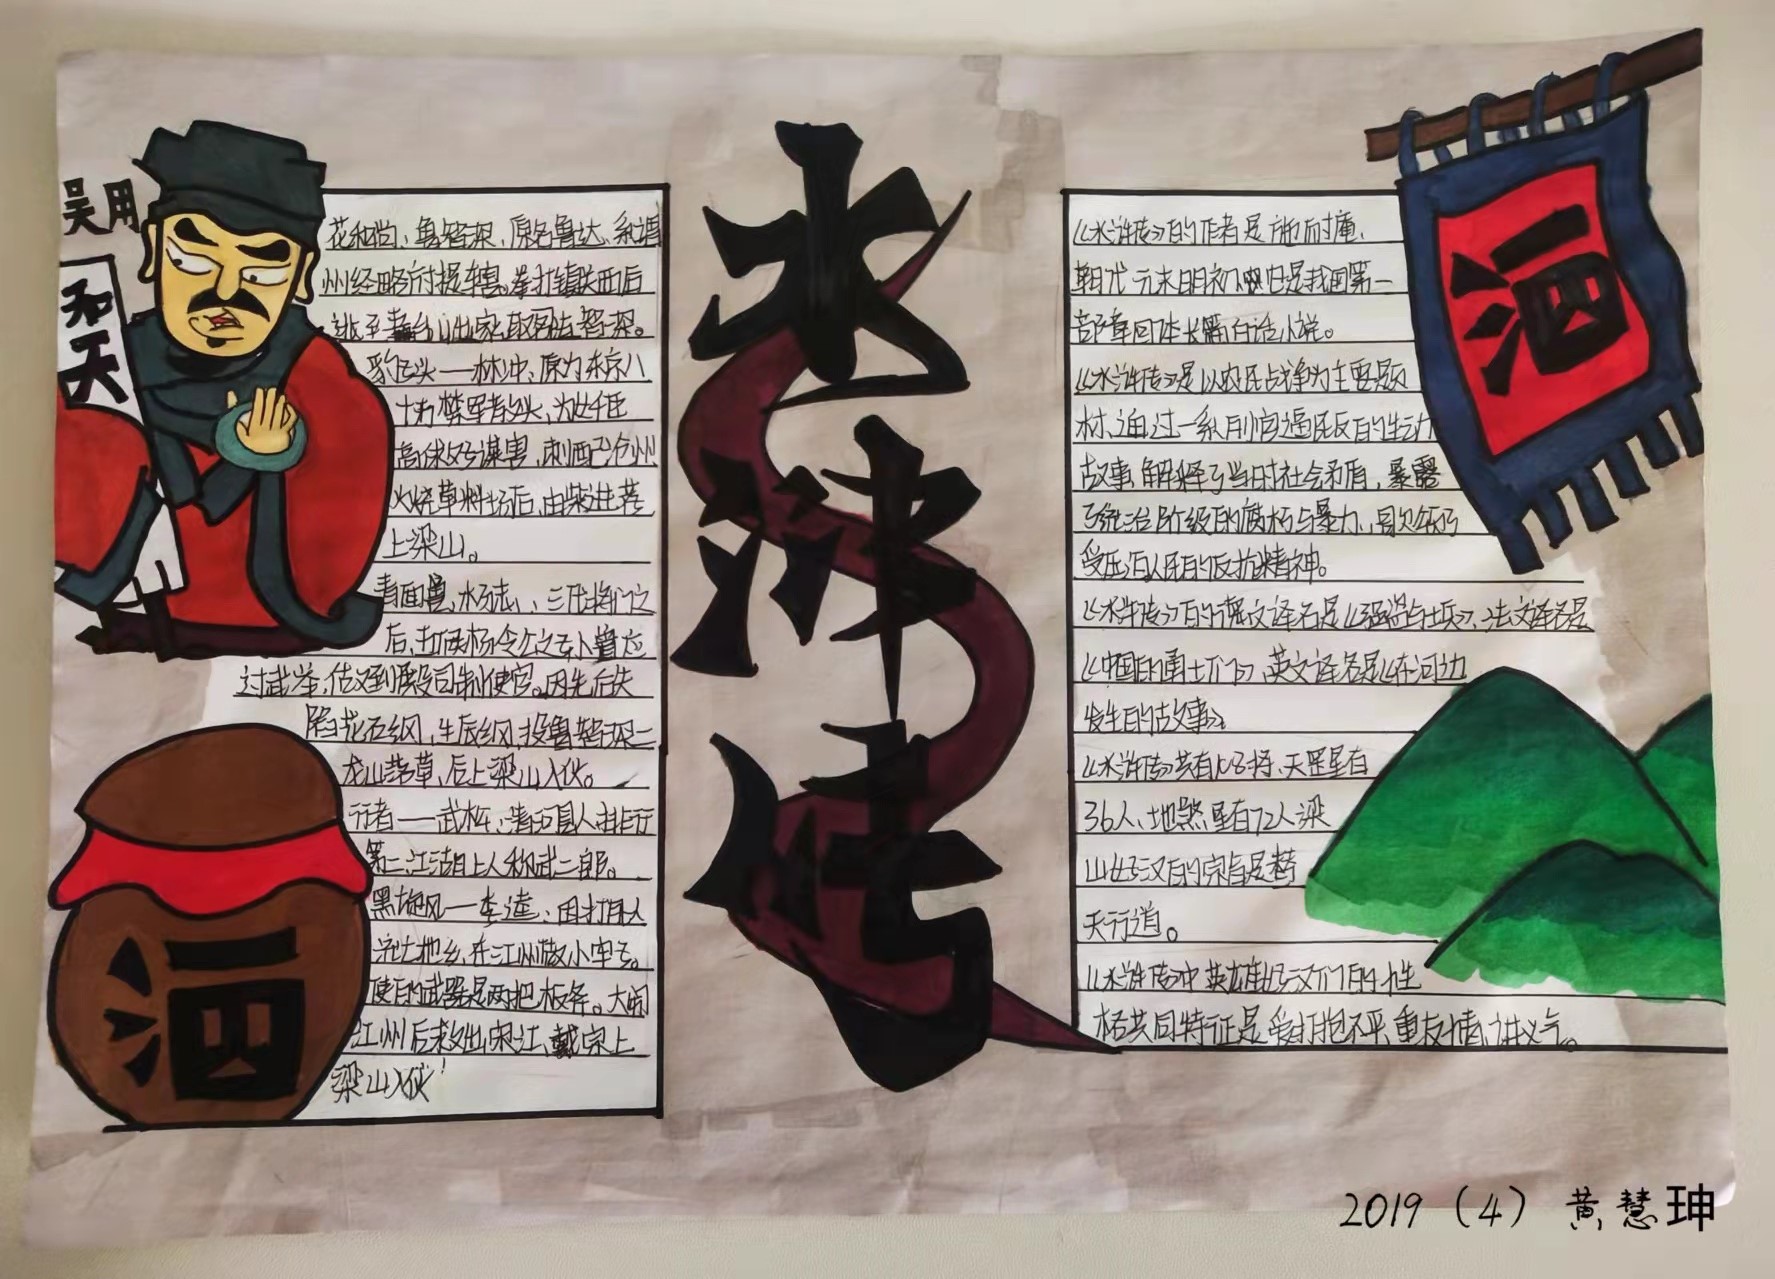 吴用
和
天
花和尚、鲁智深、原名鲁达、系渭
州经略府提辖。拳打镇关西后
逃至五台山出家,取名法智深。
豹子头——林冲、原为东京八
十万禁军教头、为奸臣
高俅父子谋害,刺配沧州
火烧草料场后,由柴进荐
上梁山。
青面兽、杨志、三代将门之
后,杨令公之孙、曾应
过武举,做到殿司制使官。因先后失
陷花石纲,生辰纲,投鲁智深二
龙山落草,后上梁山入伙。
行者——武松、清河县人,排行
第二,江湖上人称武二郎。
黑旋风——李逵、因打死人
流亡他乡,在江州做小牢子。
使的武器是两把板斧。大闹
江州后救出宋江、戴宗上
梁山入伙!
酒
水
浒
传
《水浒传》的作者是施耐庵、
朝代元末明初、也是我国第一
部章回体长篇白话小说。
《水浒传》是以农民战争为主要题
材、通过一系列官逼民反的生动
故事,解释了当时社会矛盾,暴露
了统治阶级的腐朽与暴力,
受压迫人民的反抗精神。
《水浒传》的德文译名是《强盗与士兵》、法文译名是
《中国的勇士们》英文译名是《在河边
发生的故事》
《水浒传》共有108将、天罡星有
36人、地煞星有72人梁
山好汉的宗旨是替
天行道。
《水浒传》中英雄好汉们的个性
格共同特征是爱打抱不平,重友情、讲义气。
酒
2019(4)黄慧珅